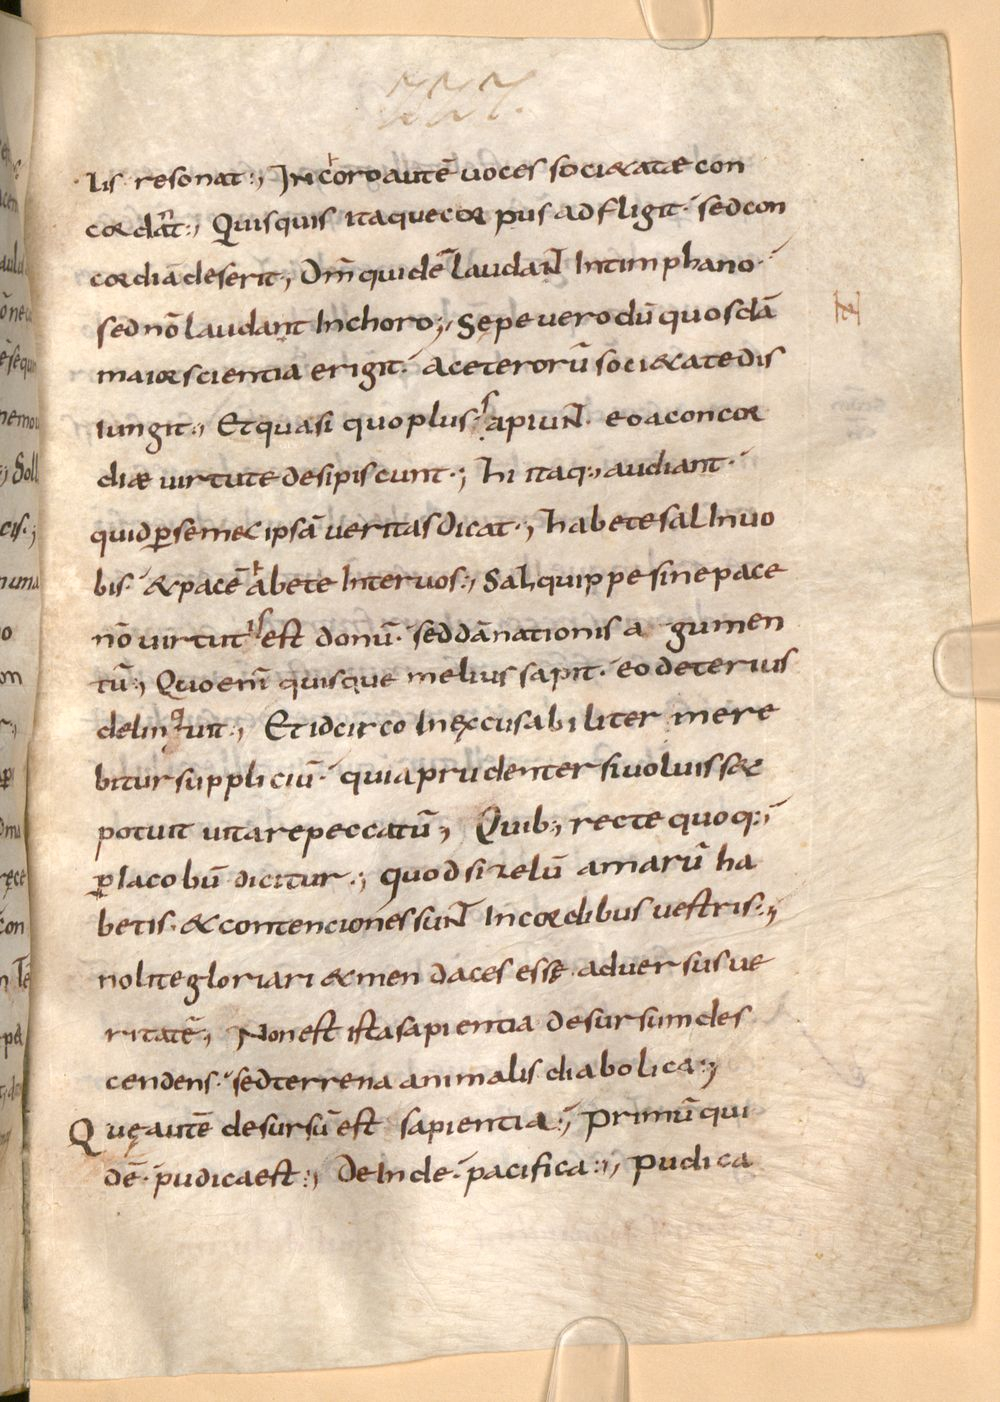 lis resonat:, In choro autē uoces soci&atae con
cordāt:, Quisquis itaque corpus adfligit· sed con
cordiā deserit:, Dm̄ quidē laudant In timphano·
sed nō laudant In choro:, Sepe uero dū quosdā
maior scientia erigit· A ceterorū soci&ate dis
iungit:, Et quasi quo plus sapiunt· eo a concor
diae uirtute desipiscunt·; hi itaq:, audiant·
quid ꝑ sem& ipsā ueritas dicat·, habete sal In uo
bis· & pacē habete Inter uos:, Sal quippe sine pace
nō uirtutis est donū· sed dānationis a gumen
tū:, Quo enī quisque melius sapit· eo deterius
delinquit:, Et idcirco Inexcusabiliter mere
bitur suppliciū· quia prudenter si uoluisset
potuit uitare peccatū:, Quib; recte quoq:;
ꝑ Iacobū dicitur·; quod si zelū amarū ha
betis· & contenciones sunt In cordibus uestris:,
nolite gloriari & mendaces esse aduersus ue
ritatē:, Non est ista sapientia desursum des
cendens· sed terrena animalis diabolica:,
Quę autē desursū est sapientia:, Primū qui
dē· pudica est:, DeInde· pacifica:, Pudica